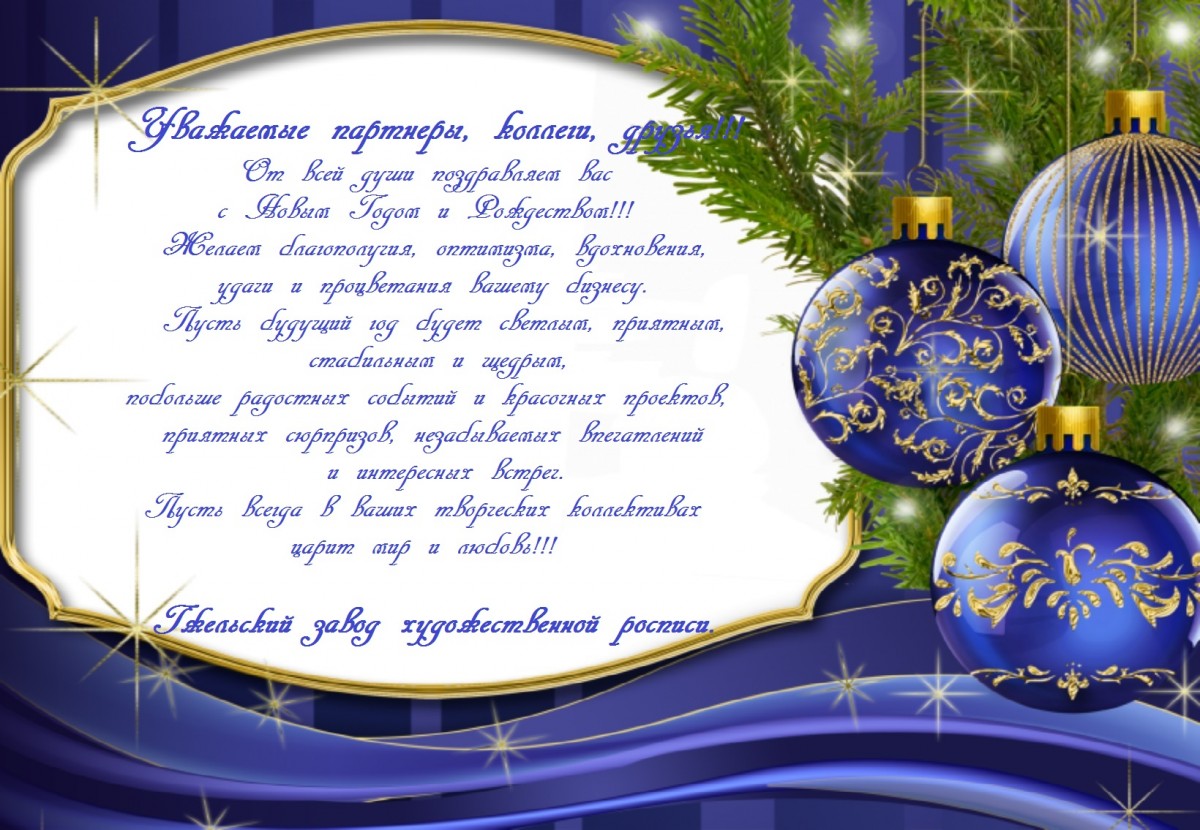 Уважаемые партнеры, коллеги, друзья!!!
От всей души поздравляем вас
с Новым Годом и Рождеством!!!
Желаем благополучия, оптимизма, вдохновения,
удачи и процветания вашему бизнесу.
Пусть будущий год будет светлым, приятным,
стабильным и щедрым,
побольше радостных событий и красочных проектов,
приятных сюрпризов, незабываемых впечатлений
и интересных встреч.
Пусть всегда в ваших творческих коллективах
царит мир и любовь!!!
Гжельский завод художественной росписи.